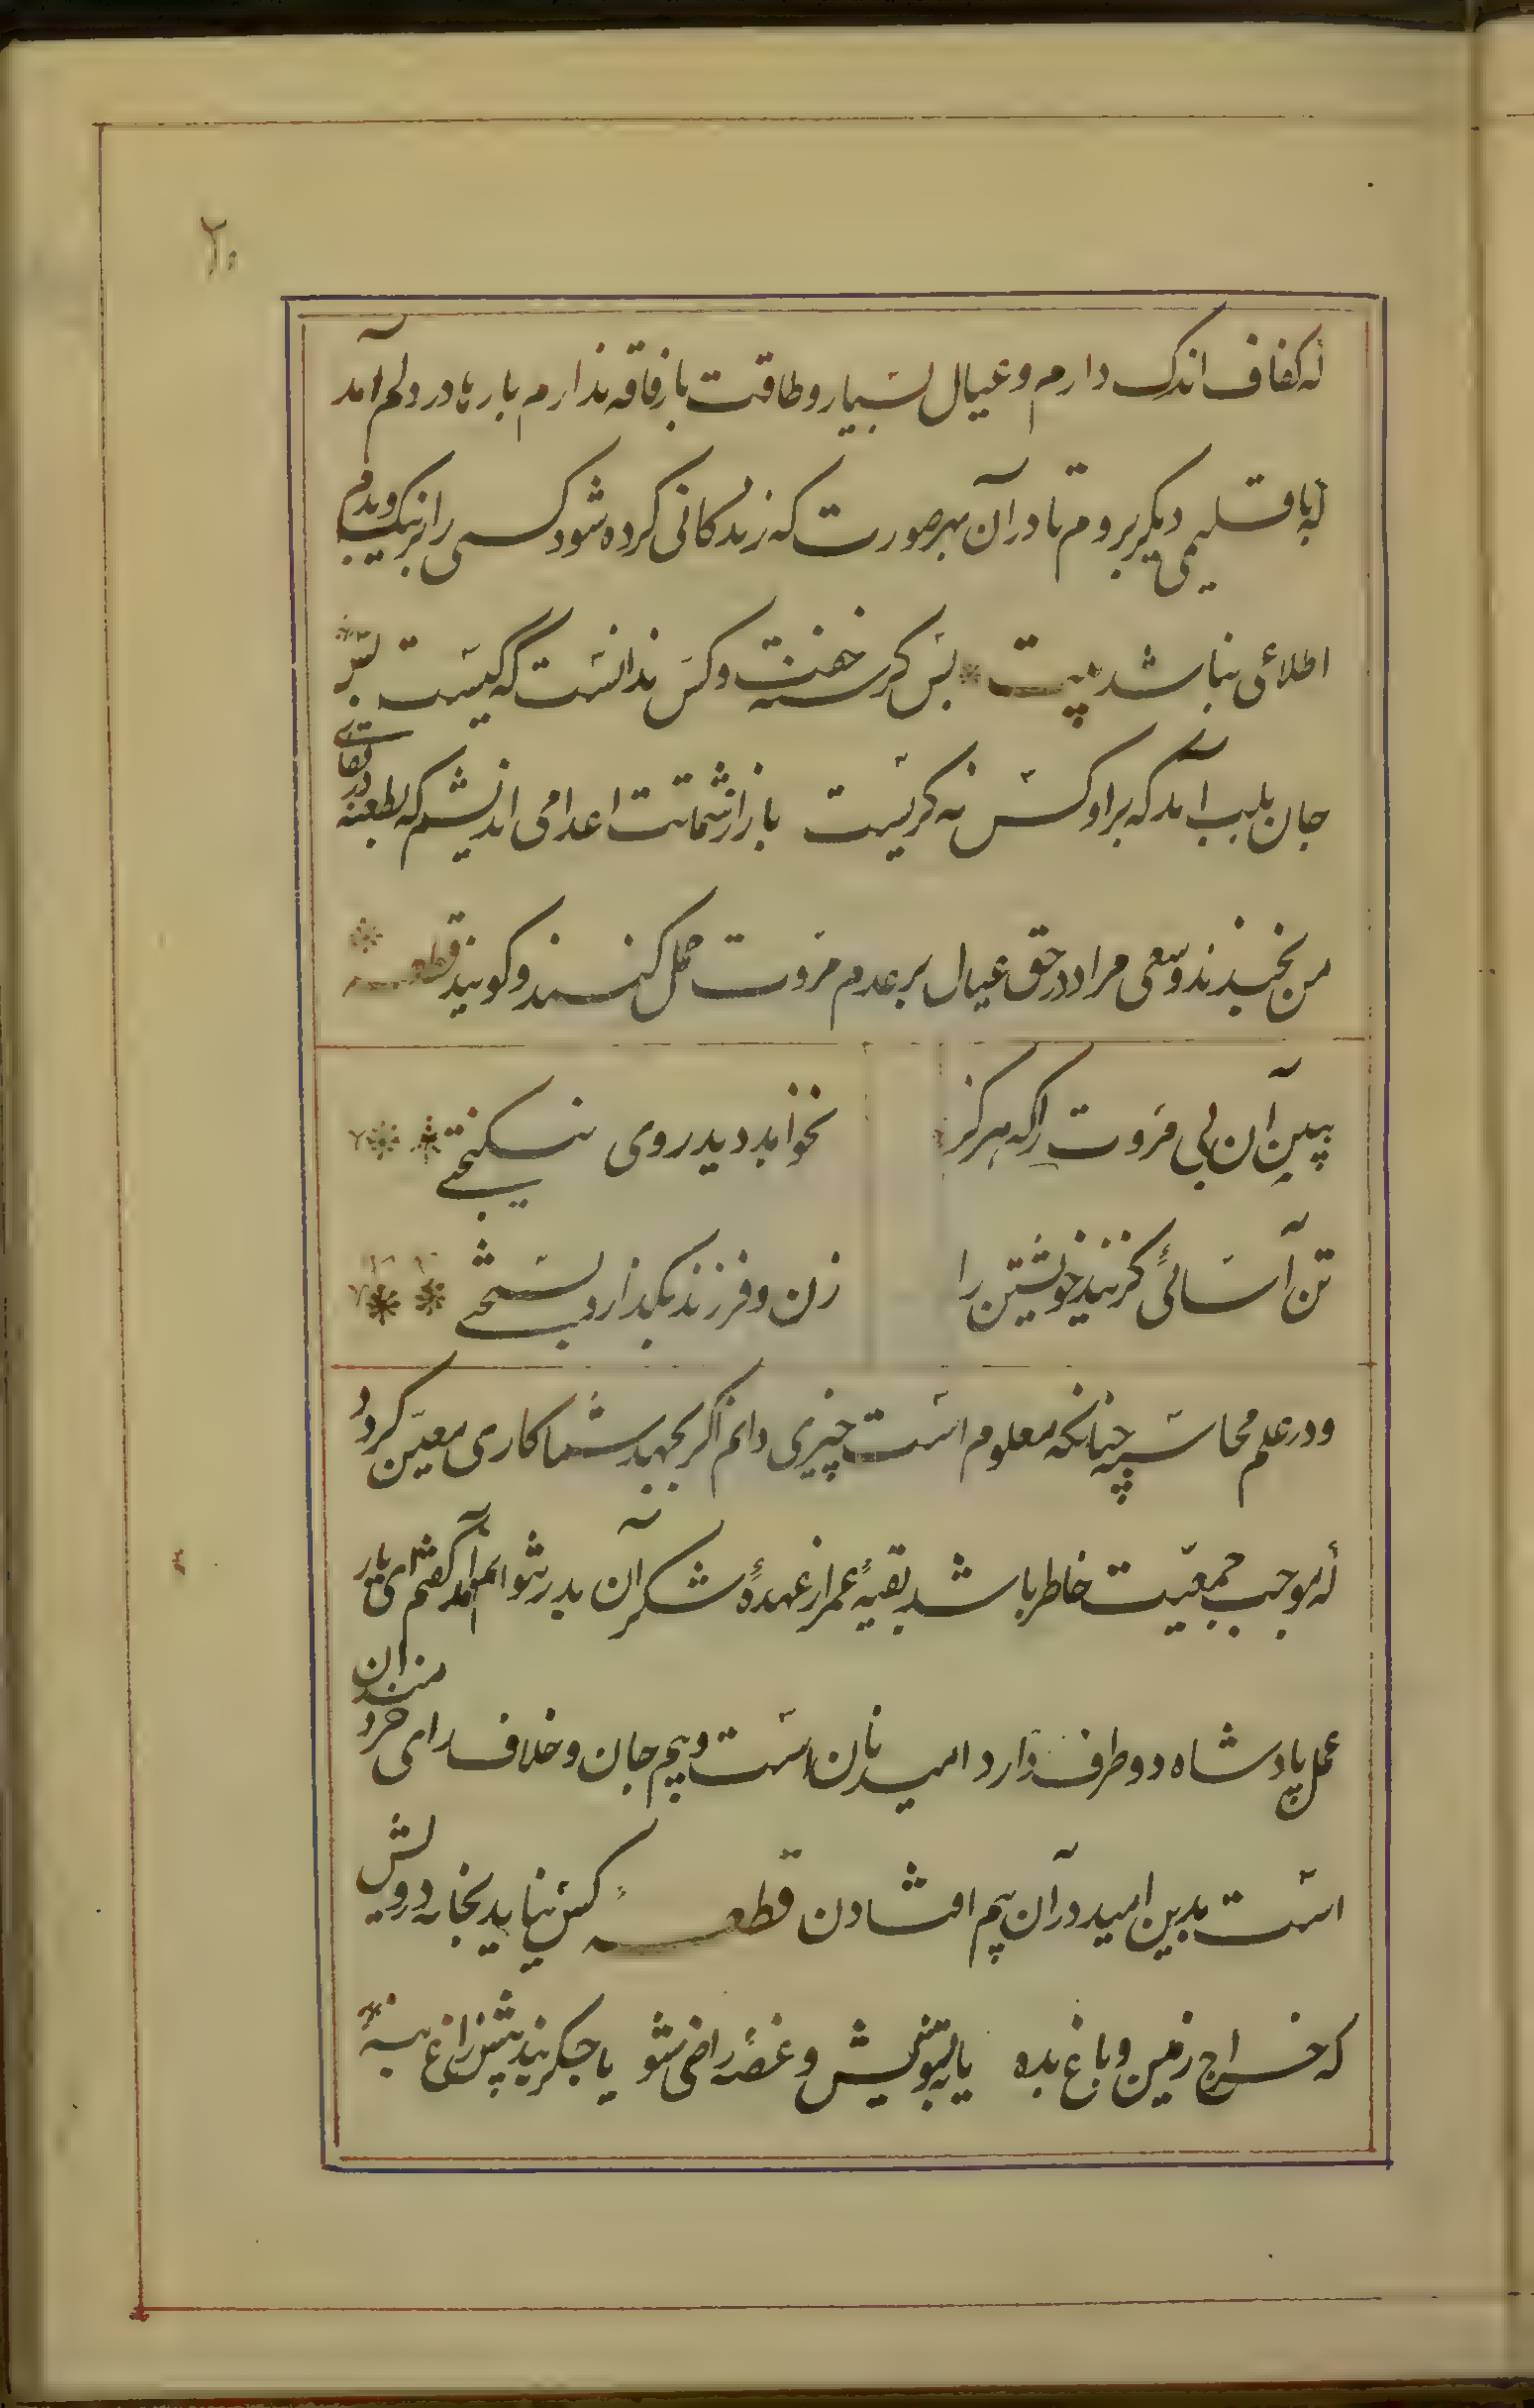 ۲۰
که کفاف اندک دارم و عیال بسیار و طاقت بار فاقه ندارم بارها در دلم آمد
که باقلیمی دیکر بروم تا در آن بهر صورت که زندکانی کرده شود کسی را بر نیک و بدم
اطلاعی نباشد بیت بس کرسنه خفت و کس ندانست که کیست بس
جان بلب آمد که بر او کس نه کریست باز از شماتت اعدا می اندیشم که بطعنه در قفای
من بخندند و سعی مرا در حق عیال بر عدم مروت حمل کنند و کویند قطعه
ببین آن بی مروت را که هرکز نخواهد دید روی نیکبختی
تن آسائی کزیند خویشتن را زن و فرزند بکذارد بسختی
و در علم محاسبه چنانکه معلوم است چیزی دانم اکر بجهد شما کاری معین کردد
که موجب جمعیت خاطر باشد بقیهٔ عمر از عهدهٔ شکر آن بدر توانم آمد کفتم ای یار
عمل پادشاه دو طرف دارد امید نان است و بیم جان و خلاف رای خردمندان
است بدین امید در آن بیم افتادن قطعه کس نیاید بخانه درویش
که خراج زمین و باغ بده یا بتشویش و غصه راضی شو یا جکربند پیش زاغ بنه